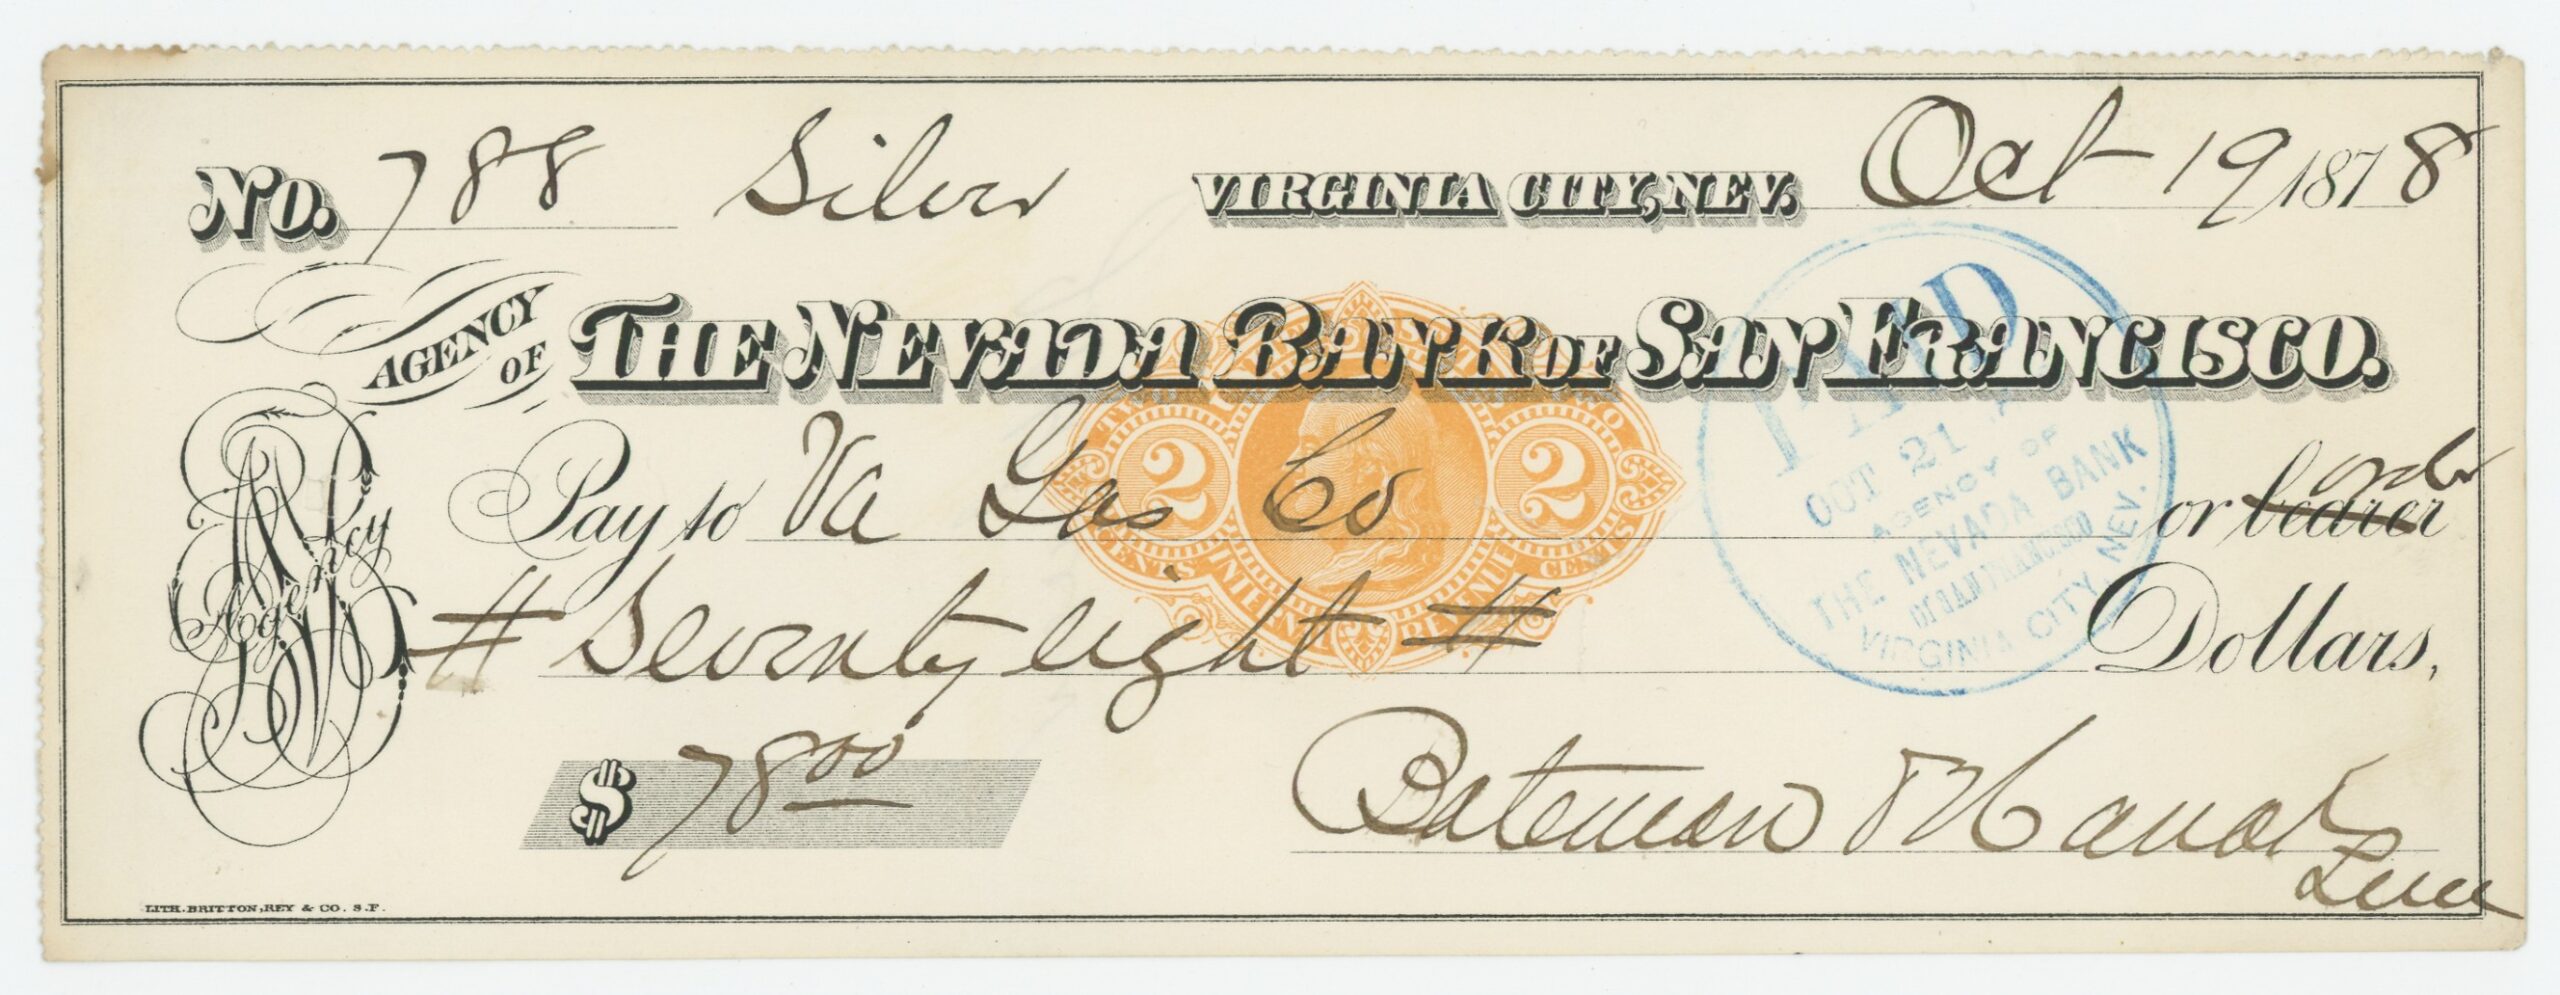 No. 788 Silver VIRGINIA CITY, NEV. Oct 19 1878
AGENCY OF THE NEVADA BANK OF SAN FRANCISCO.
Pay to Va Gas Co or bearer order
# Seventy eight # Dollars,
$ 78.00
Bateman &
Agency
TWO CENTS
2 2
TWO CENTS
INTERNAL REVENUE
PAID
OCT 21
AGENCY OF
THE NEVADA BANK
OF SAN FRANCISCO
VIRGINIA CITY, NEV.
LITH. BRITTON, REY & CO. S.F.